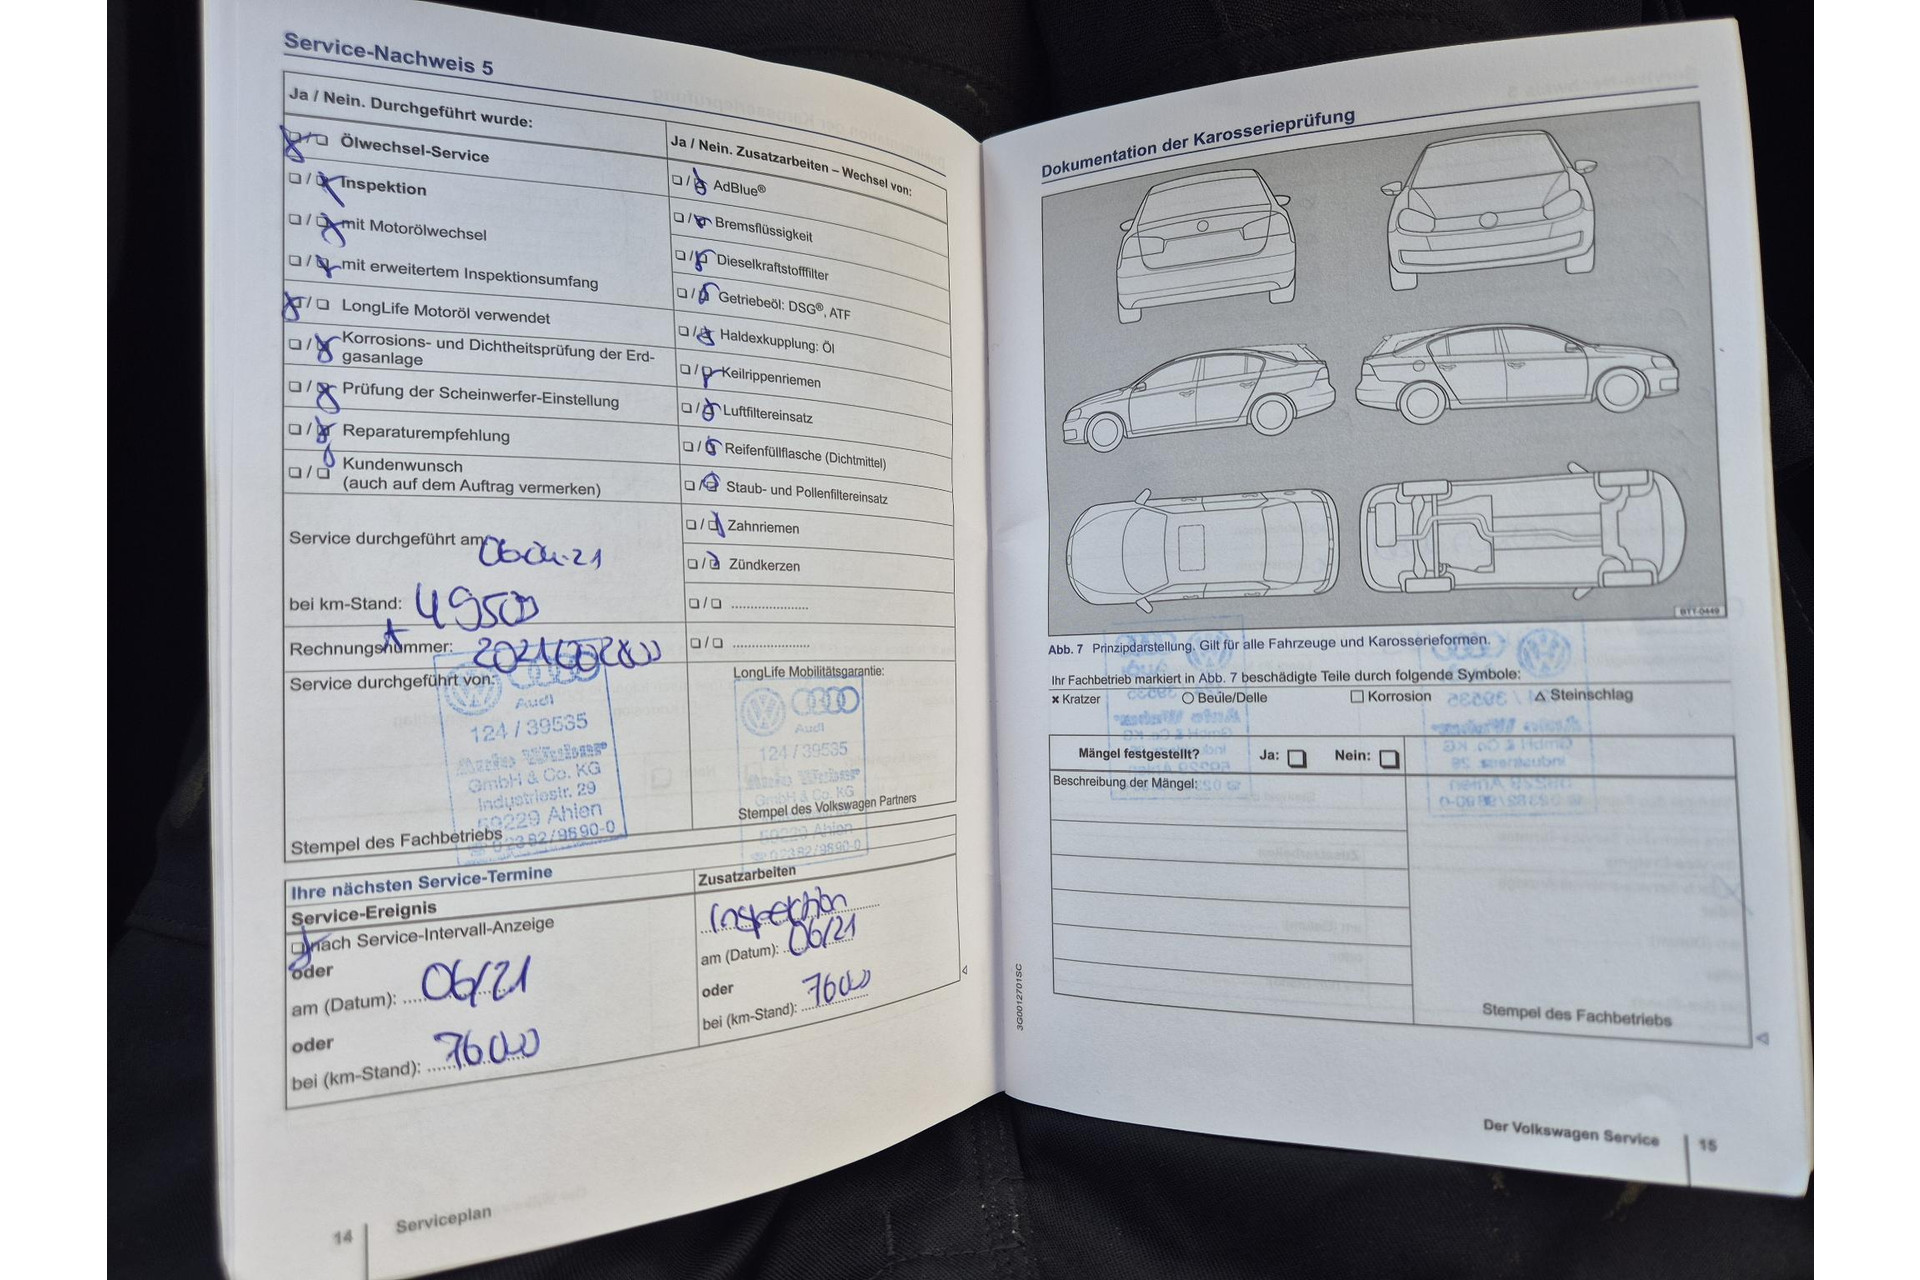 Service-Nachweis 5
Ja / Nein. Durchgeführt wurde:
❑/❑ Ölwechsel-Service
❑/❑ Inspektion
❑/❑ mit Motorölwechsel
❑/❑ mit erweitertem Inspektionsumfang
❑/❑ LongLife Motoröl verwendet
❑/❑ Korrosions- und Dichtheitsprüfung der Erd-
gasanlage
❑/❑ Prüfung der Scheinwerfer-Einstellung
❑/❑ Reparaturempfehlung
❑/❑ Kundenwunsch
(auch auf dem Auftrag vermerken)
Service durchgeführt am
bei km-Stand: 49500
Rechnungsnummer:
Service durchgeführt von:
Audi
124 / 39535
GmbH & Co. KG
Industriestr. 29
59229 Ahlen
☎ 02382/9890-0
Stempel des Fachbetriebs
Ja / Nein. Zusatzarbeiten – Wechsel von:
❑/❑ AdBlue®
❑/❑ Bremsflüssigkeit
❑/❑ Dieselkraftstofffilter
❑/❑ Getriebeöl: DSG®, ATF
❑/❑ Haldexkupplung: Öl
❑/❑ Keilrippenriemen
❑/❑ Luftfiltereinsatz
❑/❑ Reifenfüllflasche (Dichtmittel)
❑/❑ Staub- und Pollenfiltereinsatz
❑/❑ Zahnriemen
❑/❑ Zündkerzen
❑/❑ ....................
❑/❑ ....................
LongLife Mobilitätsgarantie:
Audi
124 / 39535
Auto Weber
GmbH & Co. KG
Stempel des Volkswagen Partners
59229 Ahlen
☎ 02382/9890-0
Ihre nächsten Service-Termine
Service-Ereignis
❑ nach Service-Intervall-Anzeige
oder
am (Datum): 06/21
oder
bei (km-Stand): 76000
Zusatzarbeiten
Inspektion
am (Datum): 06/21
oder
bei (km-Stand): 76000
14 Serviceplan
Dokumentation der Karosserieprüfung
BTT-0449
Abb. 7 Prinzipdarstellung. Gilt für alle Fahrzeuge und Karosserieformen.
Ihr Fachbetrieb markiert in Abb. 7 beschädigte Teile durch folgende Symbole:
× Kratzer ○ Beule/Delle □ Korrosion △ Steinschlag
Mängel festgestellt? Ja: ❑ Nein: ❑
Beschreibung der Mängel:
Stempel des Fachbetriebs
3G0012701SC
Der Volkswagen Service 15